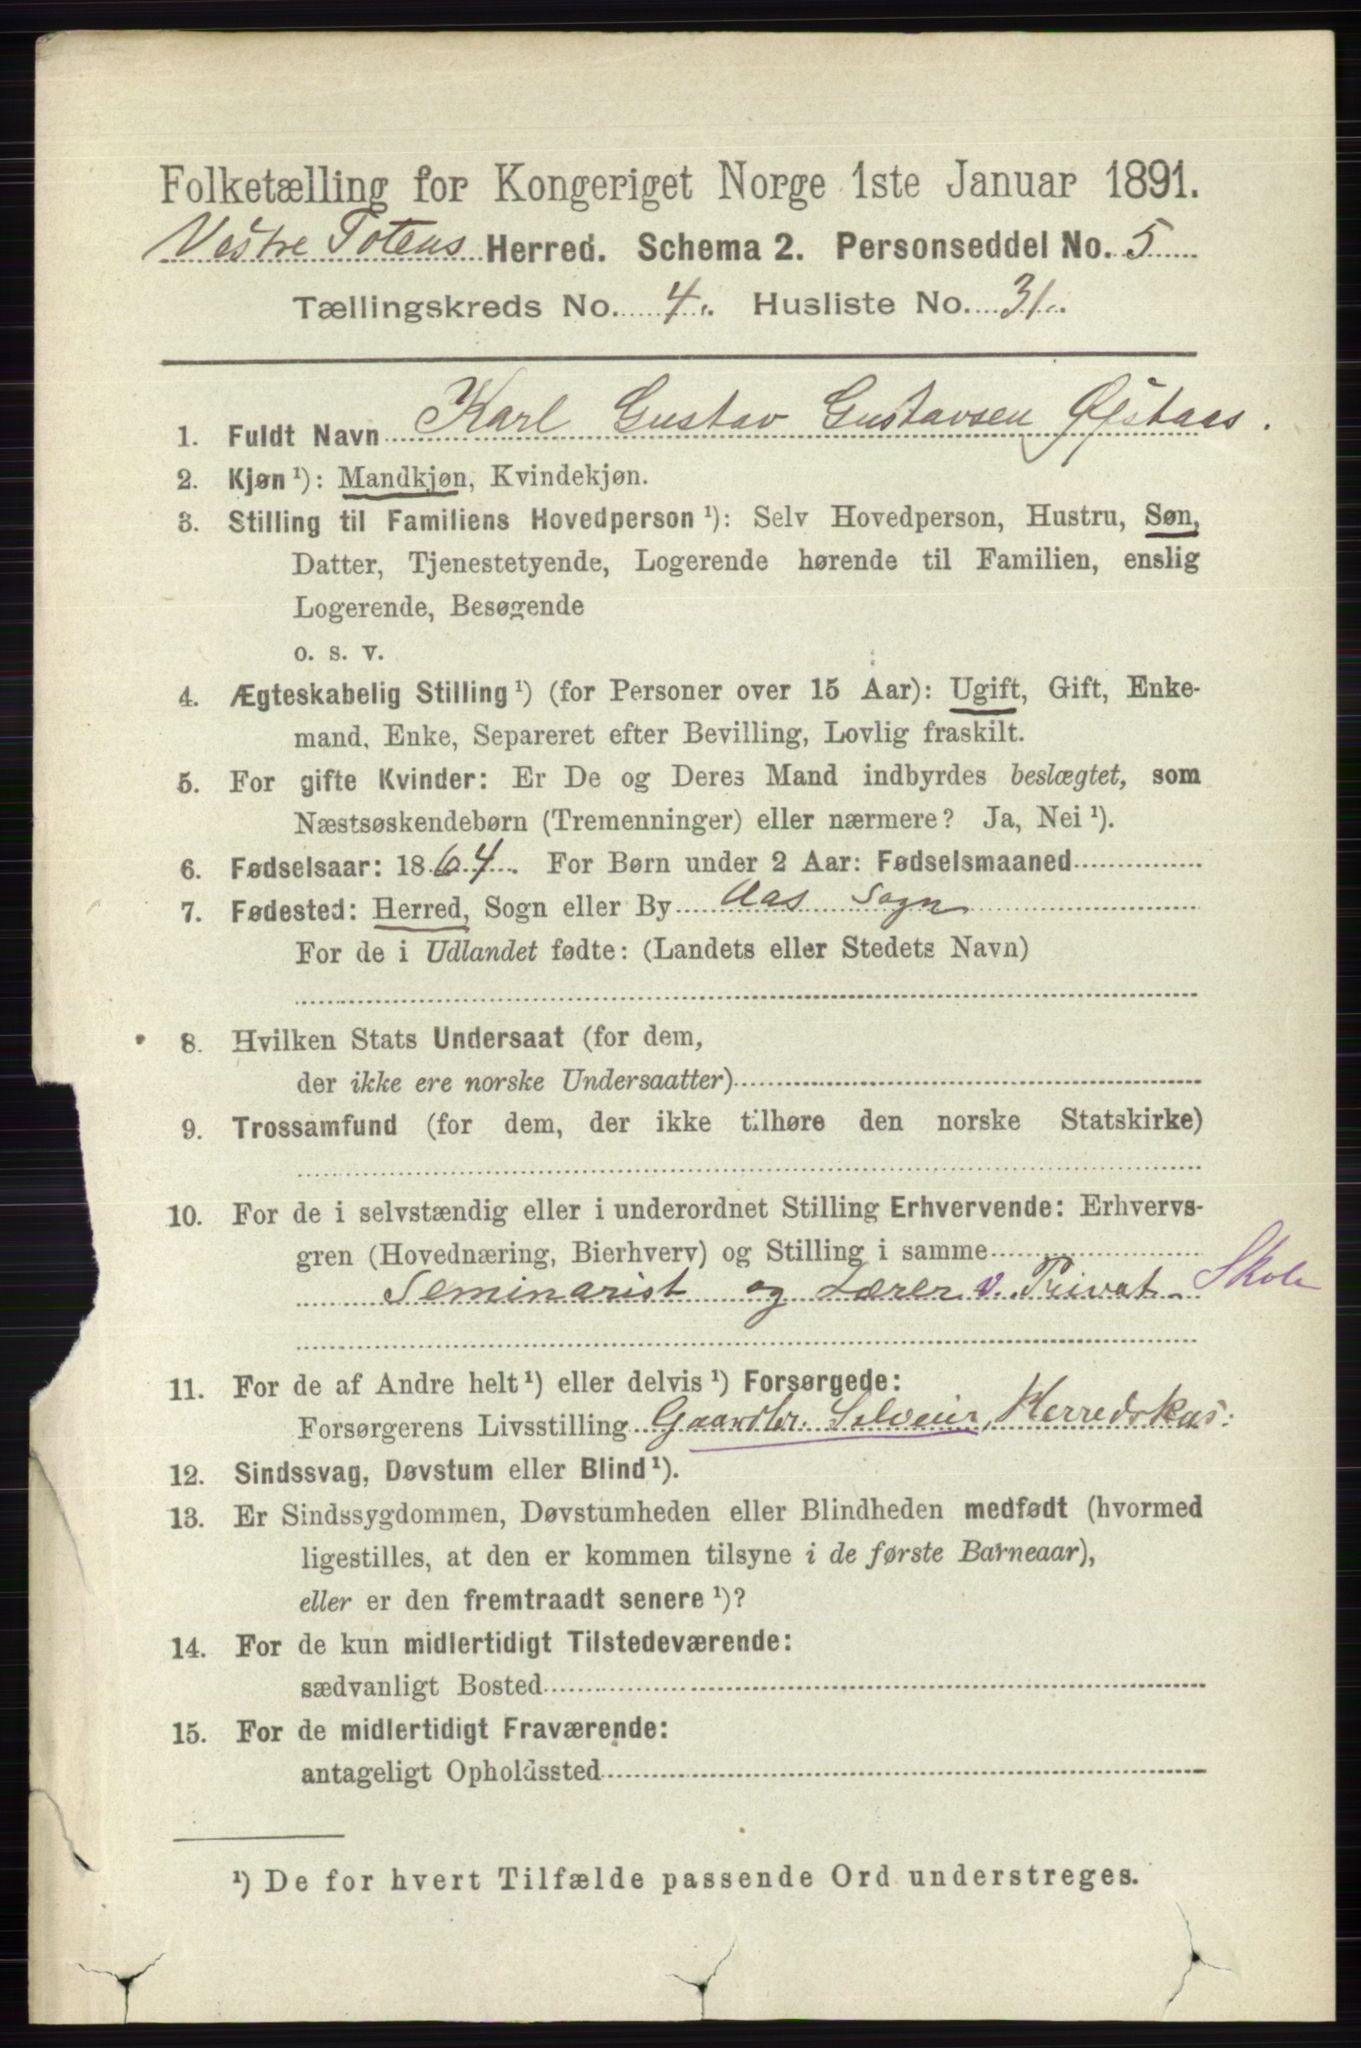 Folketælling for Kongeriget Norge 1ste Januar 1891.
Vestre Totens Herred. Schema 2. Personseddel No. 5
Tællingskreds No. 4. Husliste No. 31.
1. Fuldt Navn Karl Gustav Gustavsen Øfstaas.
2. Kjøn ¹): Mandkjøn, Kvindekjøn.
3. Stilling til Familiens Hovedperson ¹): Selv Hovedperson, Hustru, Søn,
Datter, Tjenestetyende, Logerende hørende til Familien, enslig
Logerende, Besøgende
o. s. v.
4. Ægteskabelig Stilling ¹) (for Personer over 15 Aar): Ugift, Gift, Enke-
mand, Enke, Separeret efter Bevilling, Lovlig fraskilt.
5. For gifte Kvinder: Er De og Deres Mand indbyrdes beslægtet, som
Næstsøskendebørn (Tremenninger) eller nærmere? Ja, Nei ¹).
6. Fødselsaar: 1864. For Børn under 2 Aar: Fødselsmaaned
7. Fødested: Herred, Sogn eller By Aas Sogn
For de i Udlandet fødte: (Landets eller Stedets Navn)
8. Hvilken Stats Undersaat (for dem,
der ikke ere norske Undersaatter)
9. Trossamfund (for dem, der ikke tilhøre den norske Statskirke)
10. For de i selvstændig eller i underordnet Stilling Erhvervende: Erhvervs-
gren (Hovednæring, Bierhverv) og Stilling i samme
Seminarist og Lærer v. Privat Skole
11. For de af Andre helt ¹) eller delvis ¹) Forsørgede:
Forsørgerens Livsstilling Gaardbr. Selveier, Herredskas:
12. Sindssvag, Døvstum eller Blind ¹).
13. Er Sindssygdommen, Døvstumheden eller Blindheden medfødt (hvormed
ligestilles, at den er kommen tilsyne i de første Barneaar),
eller er den fremtraadt senere ¹)?
14. For de kun midlertidigt Tilstedeværende:
sædvanligt Bosted
15. For de midlertidigt Fraværende:
antageligt Opholdssted
¹) De for hvert Tilfælde passende Ord understreges.